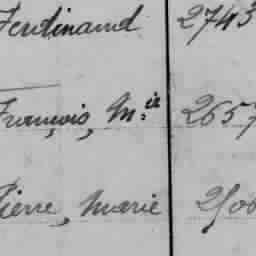 Ferdinand 2743
François, M.ie 2657
Pierre, Marie 2500